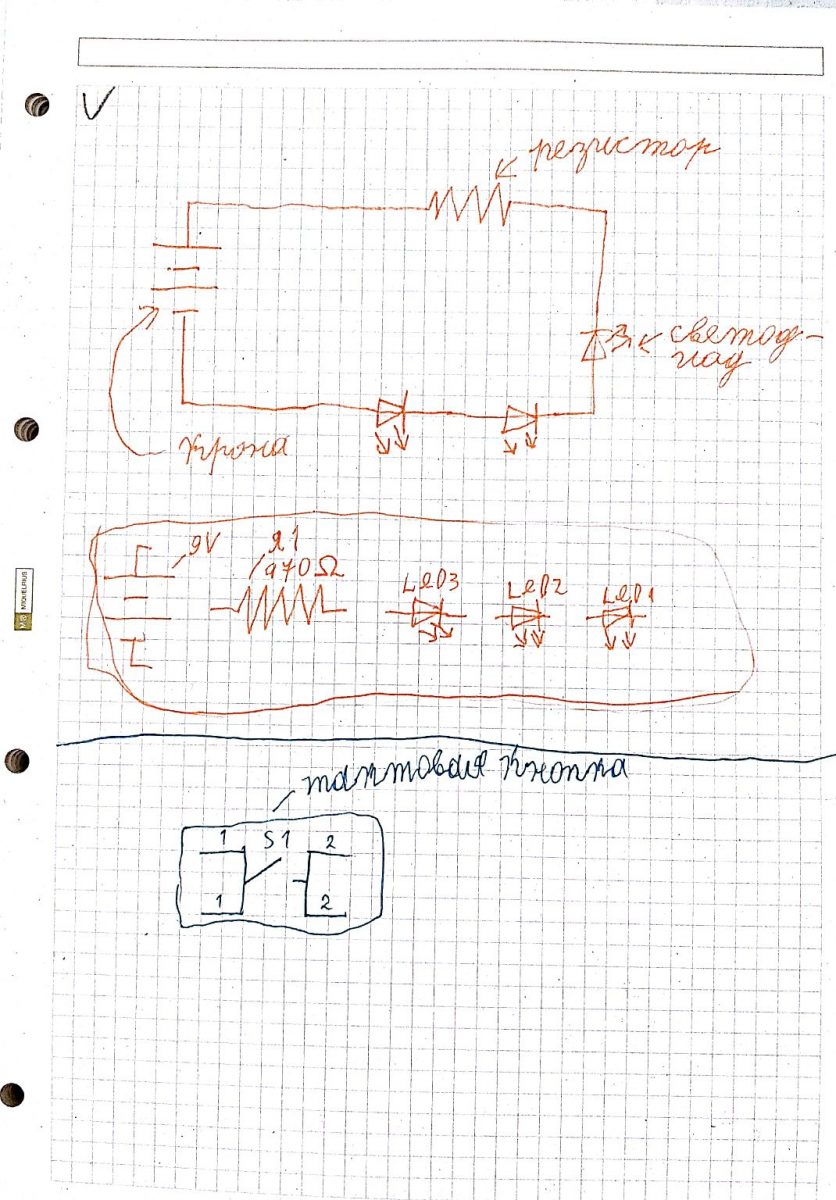 V
резистор
светод-
иод
Крона
9V
R1
470Ω
LED3
LED2
LED1
MIQUELRIUS
тактовая кнопка
1 S1 2
1 2